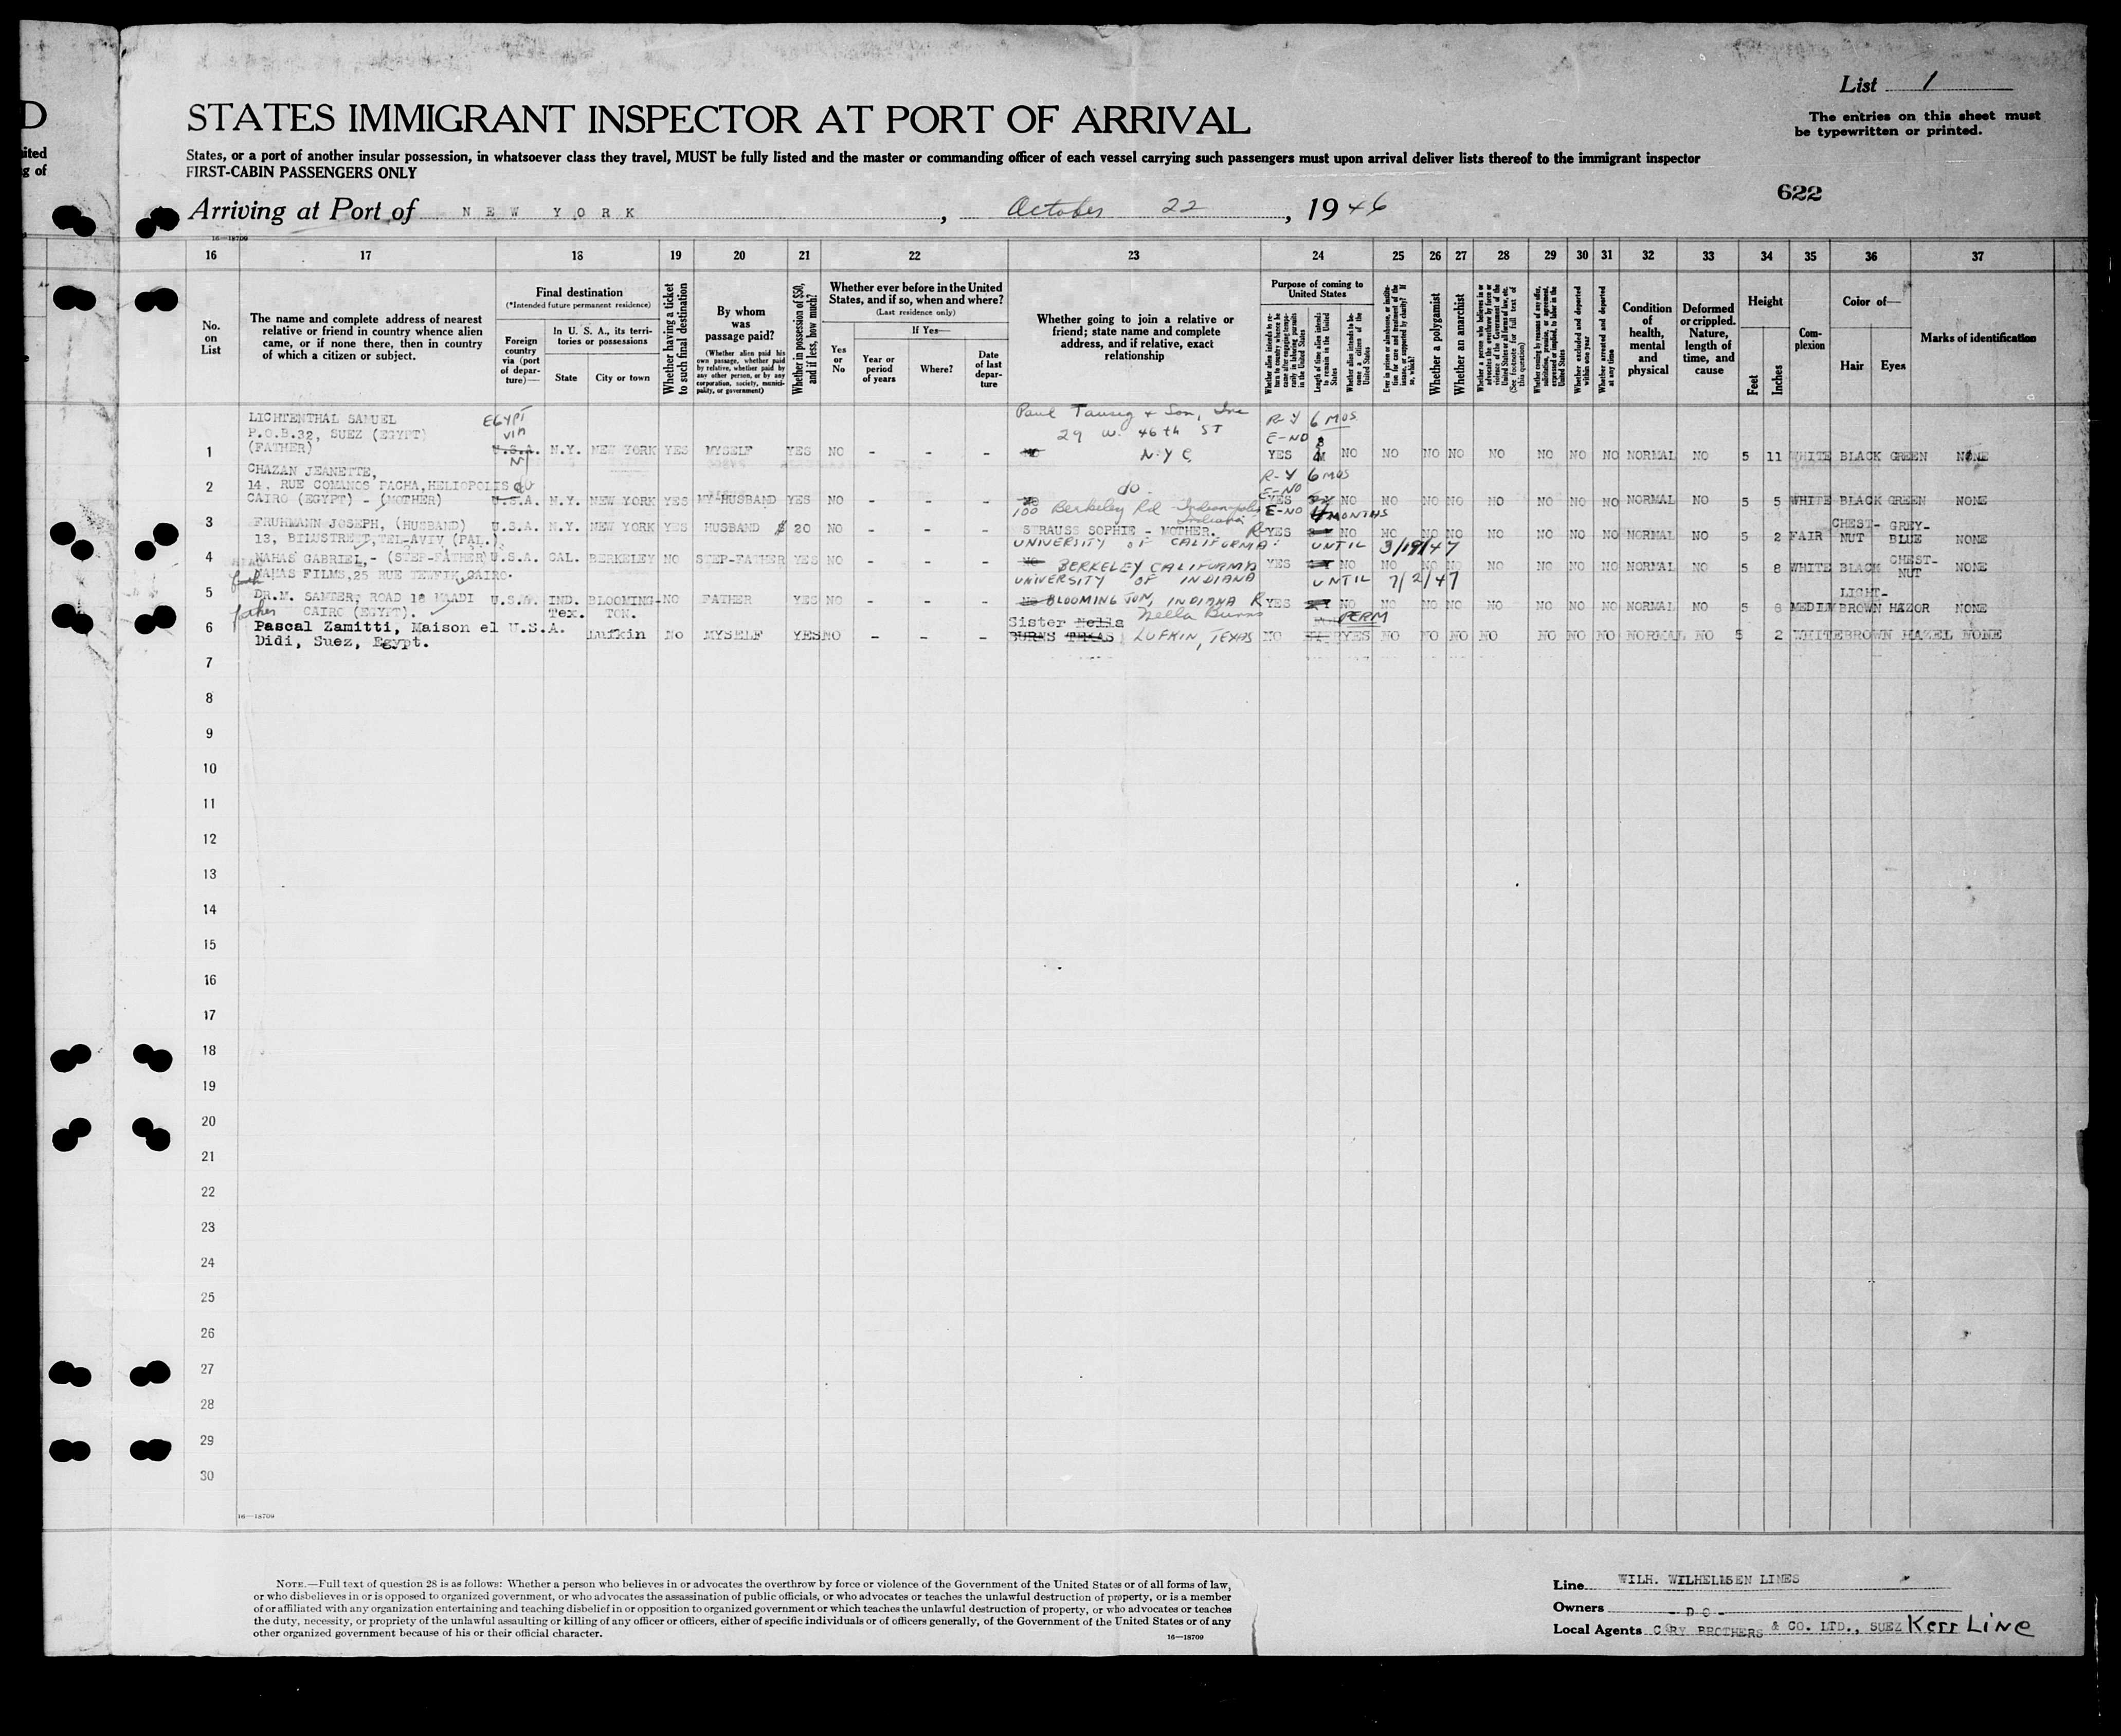 List 1
The entries on this sheet must
be typewritten or printed.
D
STATES IMMIGRANT INSPECTOR AT PORT OF ARRIVAL
ited
g of
States, or a port of another insular possession, in whatsoever class they travel, MUST be fully listed and the master or commanding officer of each vessel carrying such passengers must upon arrival deliver lists thereof to the immigrant inspector
FIRST-CABIN PASSENGERS ONLY
622
Arriving at Port of NEW YORK, October 22, 1946
16—18709
16 17 18 19 20 21 22 23 24 25 26 27 28 29 30 31 32 33 34 35 36 37
No. on List
The name and complete address of nearest relative or friend in country whence alien came, or if none there, then in country of which a citizen or subject.
Final destination
(*Intended future permanent residence)
Foreign country via (port of departure)—
In U. S. A., its territories or possessions
State
City or town
Whether having a ticket to such final destination
By whom was passage paid?
(Whether alien paid his own passage, whether paid by relative, whether paid by any other person, or by any corporation, society, municipality, or government)
Whether in possession of $50, and if less, how much?
Whether ever before in the United States, and if so, when and where?
(Last residence only)
Yes or No
If Yes—
Year or period of years
Where?
Date of last departure
Whether going to join a relative or friend; state name and complete address, and if relative, exact relationship
Purpose of coming to United States
Whether alien intends to return to country whence he came after engaging temporarily in laboring pursuits in the United States
Length of time alien intends to remain in the United States
Whether alien intends to become a citizen of the United States
Ever in prison or almshouse, or institution for care and treatment of the insane, or supported by charity? If so, which?
Whether a polygamist
Whether an anarchist
Whether a person who believes in or advocates the overthrow by force or violence of the Government of the United States or all forms of law, etc. (See footnote for full text of this question)
Whether coming by reasons of any offer, solicitation, promise, or agreement, expressed or implied, to labor in the United States
Whether excluded and deported within one year
Whether arrested and deported at any time
Condition of health, mental and physical
Deformed or crippled. Nature, length of time, and cause
Height
Feet
Inches
Complexion
Color of—
Hair Eyes
Marks of identification
LICHTENTHAL SAMUEL EGYPT Paul Tausig + Son, Inc R-Y 6 MOS
P.O.B.32, SUEZ (EGYPT) VIA 29 W. 46th ST E-NO
1 (FATHER) U.S.A. N.Y. NEW YORK YES MYSELF YES NO - - - NO N.Y.C. YES NO NO NO NO NO NO NO NO NORMAL NO 5 11 WHITE BLACK GREEN NONE
NY
CHAZAN JEANETTE, R-Y 6 MOS
2 14, RUE COMANOS PACHA,HELIOPOLIS do do. E-NO
CAIRO (EGYPT) - (MOTHER) U.S.A. N.Y. NEW YORK YES MY HUSBAND YES NO - - - NO YES NO NO NO NO NO NO NO NO NORMAL NO 5 5 WHITE BLACK GREEN NONE
100 Berkeley Rd Indianapolis Indiana E-NO 4 MONTHS
3 FRUHMANN JOSEPH, (HUSBAND) U.S.A. N.Y. NEW YORK YES HUSBAND $ 20 NO - - - STRAUSS SOPHIE - MOTHER. R-YES NO NO NO NO NO NO NO NO NORMAL NO 5 2 FAIR CHEST-NUT GREY-BLUE NONE
13, BILUSTREET,TEL-AVIV (PAL.) UNIVERSITY OF CALIFORNIA UNTIL 3/19/47
4 NAHAS GABRIEL,- (STEP-FATHER) U.S.A. CAL. BERKELEY NO STEP-FATHER YES NO - - - NO BERKELEY CALIFORNIA YES NO NO NO NO NO NO NO NO NORMAL NO 5 8 WHITE BLACK CHEST-NUT NONE
NAHAS FILMS,25 RUE TEWFIK,CAIRO. UNIVERSITY OF INDIANA UNTIL 7/2/47
5 DR.M. SAMTER, ROAD 18 MAADI U.S.A. IND. BLOOMING-TON. NO FATHER YES NO - - - NO BLOOMINGTON, INDIANA R YES NO NO NO NO NO NO NO NO NORMAL NO 5 8 MEDIUM LIGHT-BROWN HAZOR NONE
father CAIRO (EGYPT).
Sister Nella Nella Burns PERM
6 Pascal Zamitti, Maison el U.S.A. Tex. Lufkin No MYSELF YES NO - - - BURNS TEXAS LUFKIN, TEXAS NO YES NO NO NO NO NO NO NO NORMAL NO 5 2 WHITE BROWN HAZEL NONE
Didi, Suez, Egypt.
7
8
9
10
11
12
13
14
15
16
17
18
19
20
21
22
23
24
25
26
27
28
29
30
16—18709
NOTE.—Full text of question 28 is as follows: Whether a person who believes in or advocates the overthrow by force or violence of the Government of the United States or of all forms of law,
or who disbelieves in or is opposed to organized government, or who advocates the assassination of public officials, or who advocates or teaches the unlawful destruction of property, or is a member
of or affiliated with any organization entertaining and teaching disbelief in or opposition to organized government or which teaches the unlawful destruction of property, or who advocates or teaches
the duty, necessity, or propriety of the unlawful assaulting or killing of any officer or officers, either of specific individuals or of officers generally, of the Government of the United States or of any
other organized government because of his or their official character.
16—18709
Line WILH. WILHELMSEN LINES
Owners - D O -
Local Agents CORY BROTHERS & CO. LTD., SUEZ Kerr Line